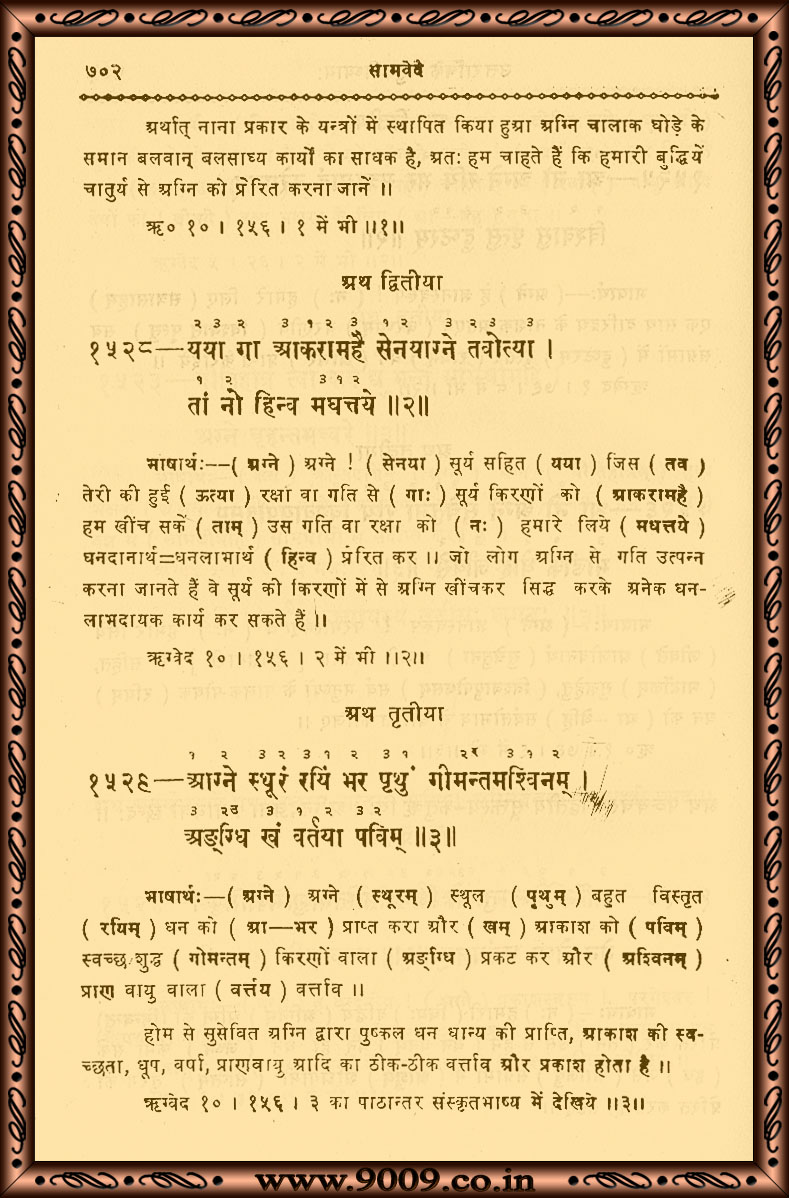 ७०२ सामवेदे
अर्थात् नाना प्रकार के यन्त्रों में स्थापित किया हुआ अग्नि चालाक घोड़े के
समान बलवान् बलसाध्य कार्यों का साधक है, अतः हम चाहते हैं कि हमारी बुद्धियें
चातुर्य से अग्नि को प्रेरित करना जानें ॥
ऋ० १० । १५६ । १ में भी ॥१॥
अथ द्वितीया
२ ३ २ ३ १ २ ३ १ २ ३ २ ३ ३
१५२८—यया गा आकरामहै सेनयाग्ने तवोत्या ।
१ २ ३ १ २
तां नो हिन्व मघत्तये ॥२॥
भाषार्थः—( अग्ने ) अग्ने ! ( सेनया ) सूर्य सहित ( यया ) जिस ( तव )
तेरी की हुई ( ऊत्या ) रक्षा वा गति से ( गाः ) सूर्य किरणों को ( आकरामहै )
हम खींच सकें ( ताम् ) उस गति वा रक्षा को ( नः ) हमारे लिये ( मघत्तये )
धनदानार्थ=धनलाभार्थ ( हिन्व ) प्रेरित कर ॥ जो लोग अग्नि से गति उत्पन्न
करना जानते हैं वे सूर्य की किरणों में से अग्नि खींचकर सिद्ध करके अनेक धन-
लाभदायक कार्य कर सकते हैं ॥
ऋग्वेद १० । १५६ । २ में भी ॥२॥
अथ तृतीया
१ २ ३ २ ३ १ २ ३ १ २र ३ १ २
१५२९—आग्ने स्थूरं रयिं भर पृथुं गोमन्तमश्विनम् ।
३ २उ ३ १ २ ३ २
अङ्ग्धि खं वर्तया पविम् ॥३॥
भाषार्थः—( अग्ने ) अग्ने ( स्थूरम् ) स्थूल ( पृथुम् ) बहुत विस्तृत
( रयिम् ) धन को ( आ—भर ) प्राप्त करा और ( खम् ) आकाश को ( पविम् )
स्वच्छ शुद्ध ( गोमन्तम् ) किरणों वाला ( अङ्ग्धि ) प्रकट कर और ( अश्विनम् )
प्राण वायु वाला ( वर्त्तय ) वर्त्ताव ॥
होम से सुसेवित अग्नि द्वारा पुष्कल धन धान्य की प्राप्ति, आकाश की स्व-
च्छता, धूप, वर्षा, प्राणवायु आदि का ठीक-ठीक वर्त्ताव और प्रकाश होता है ॥
ऋग्वेद १० । १५६ । ३ का पाठान्तर संस्कृतभाष्य में देखिये ॥३॥
www.9009.co.in